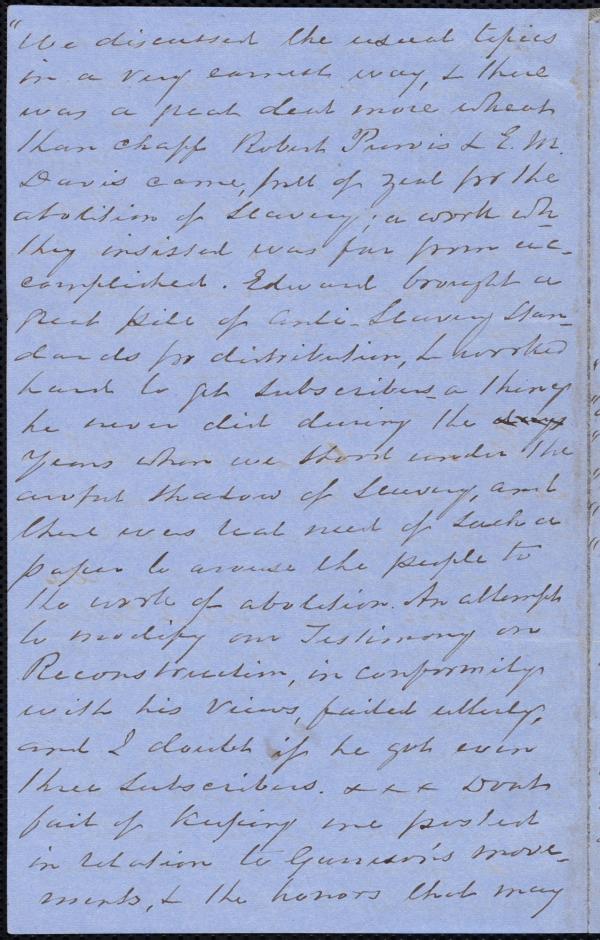 "We discussed the usual topics
in a very earnest way, & there
was a great deal more wheat
than chaff. Robert Purvis & E. M.
Davis came, full of zeal for the
abolition of Slavery, a work wh
they insisted was far from ac-
complished. Edward brought a
great pile of Anti-Slavery Stan-
dards for distribution, & worked
hard to get subscribers - a thing
he never did during the days
years when we stood under the
awful shadow of Slavery, and
there was real need of such a
paper to arouse the people to
the work of abolition. An attempt
to modify our Testimony on
Reconstruction, in conformity
with his views, failed utterly,
and I doubt if he got even
three subscribers. x x x Don't
fail of keeping me posted
in relation to Garrison's move-
ments, & the honors that may